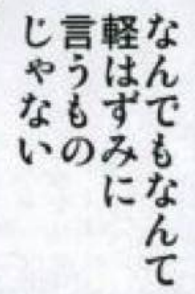 なんでもなんて
軽はずみに
言うもの
じゃない